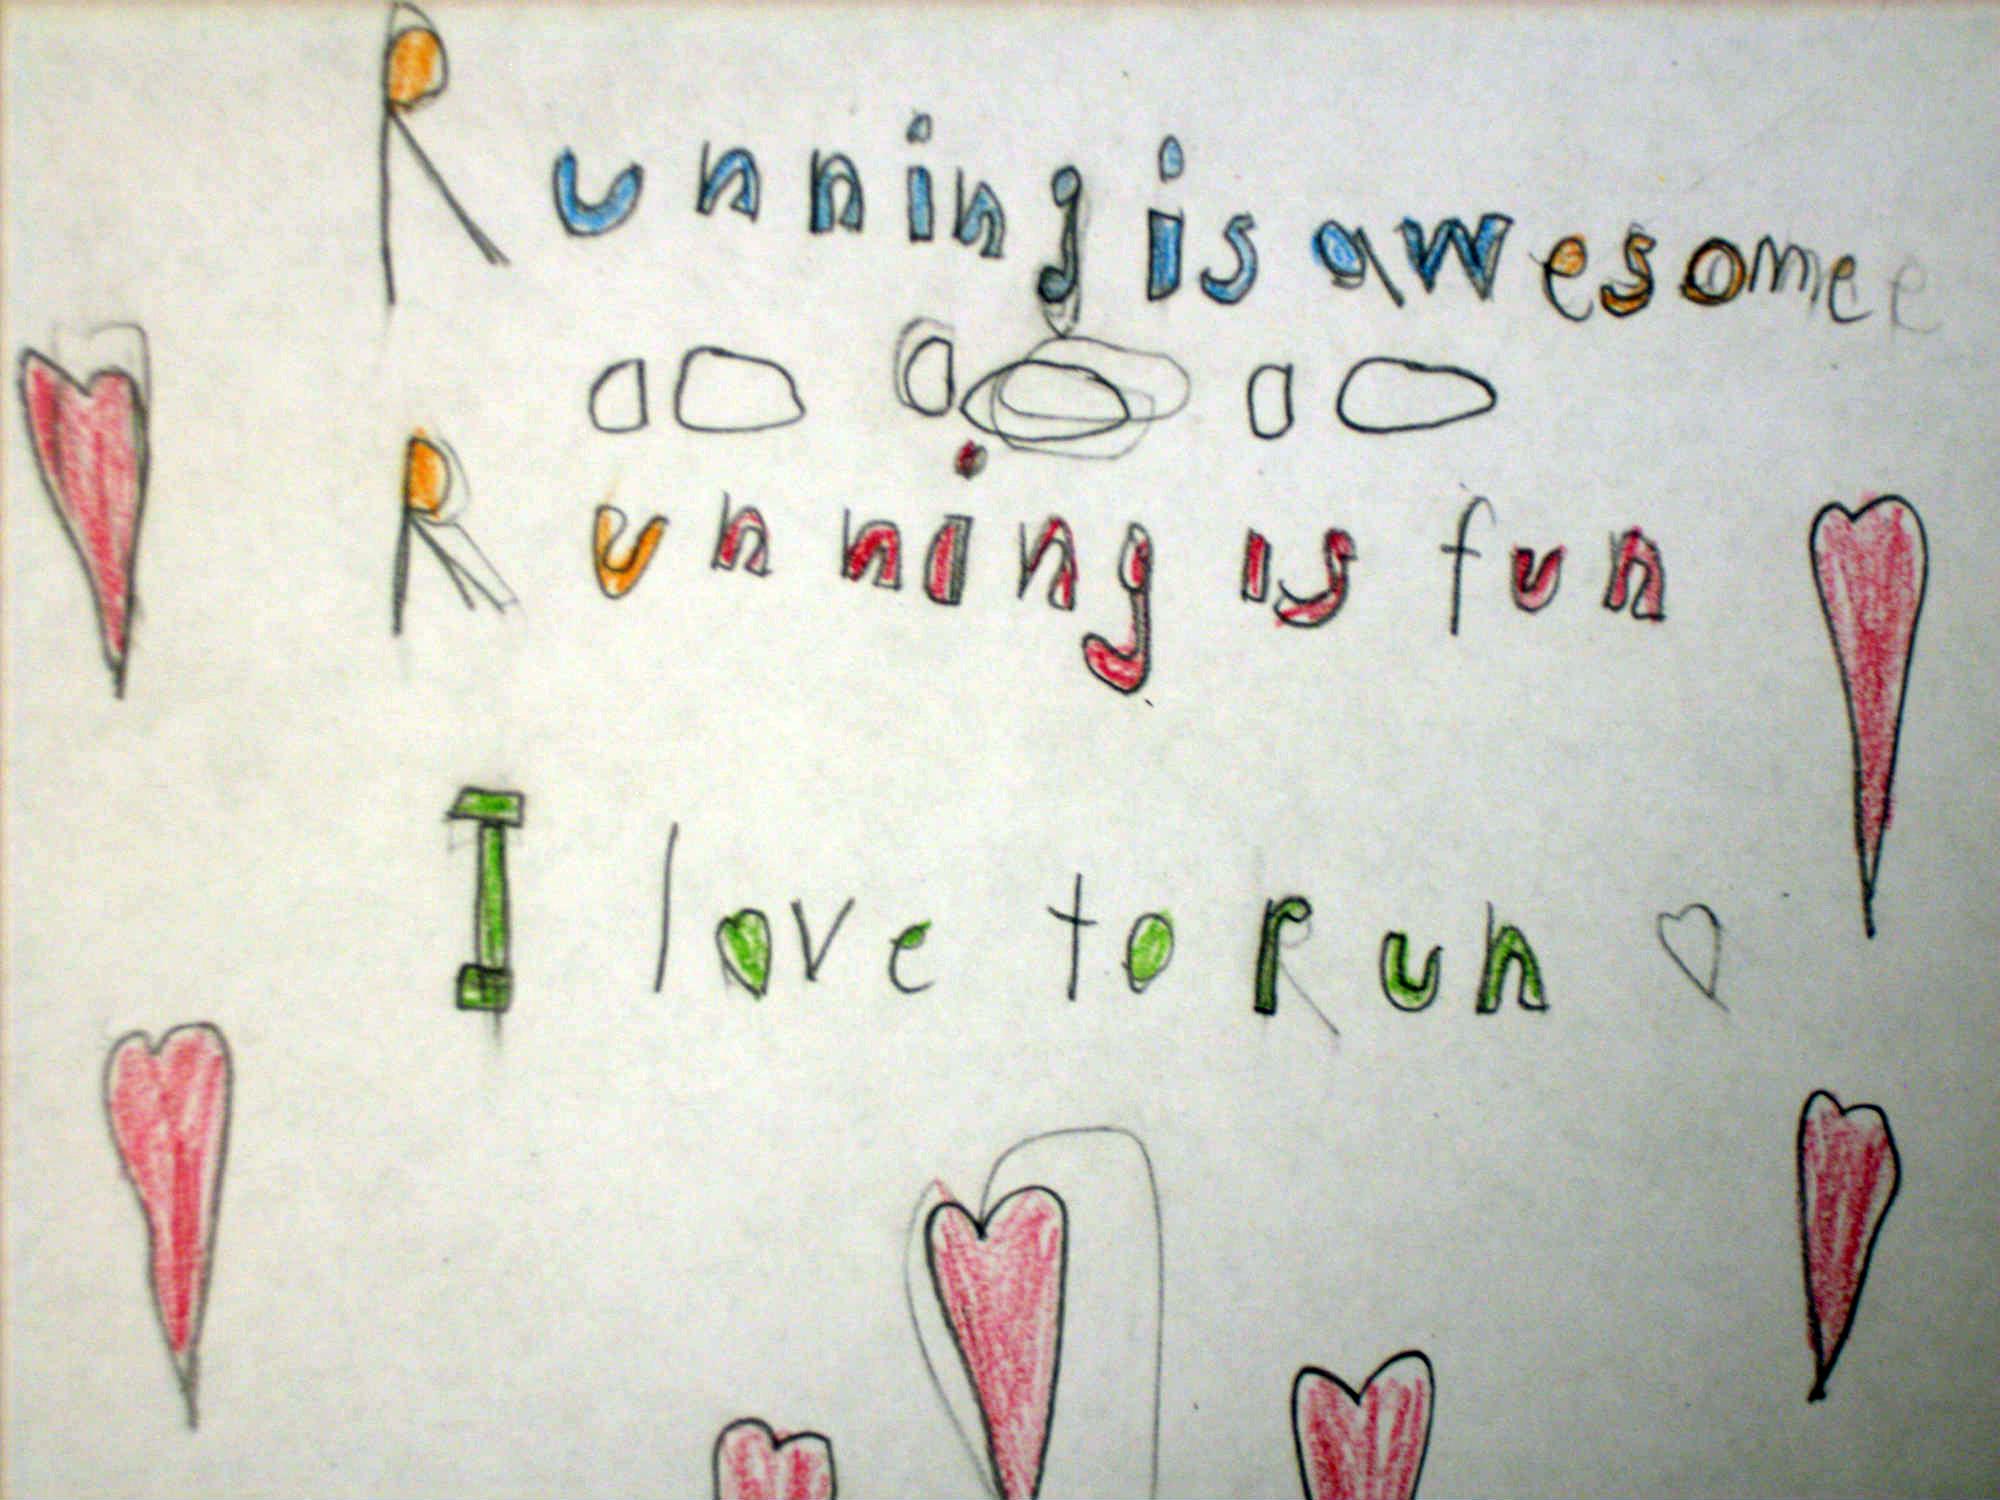 Running is awesome
Running is fun
I love to Run